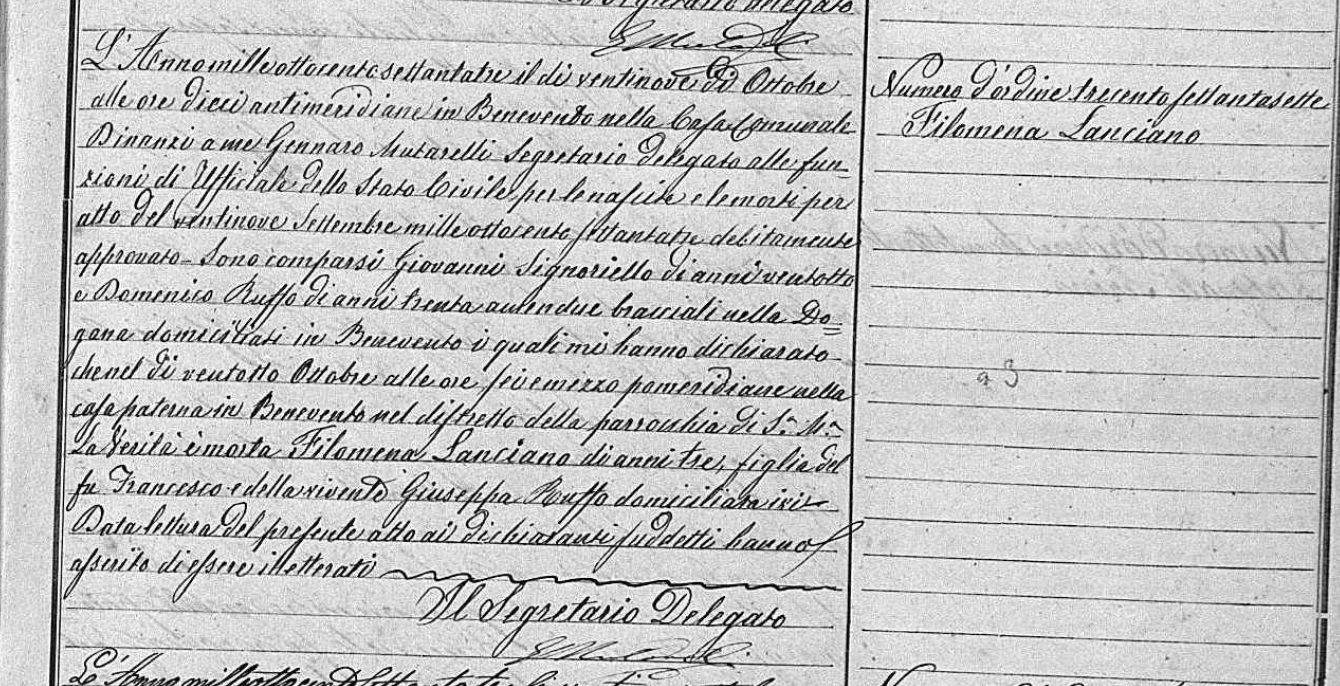 Segretario delegato
L'Anno mille ottocento settantatre il di ventinove di Ottobre
alle ore dieci antimeridiane in Benevento nella Casa Comunale
Dinanzi a me Gennaro Mutarelli Segretario delegato alle fun
zioni di Uffiziale dello Stato Civile per le nascite e le morti per
atto del ventinove Settembre mille ottocento settantatre debitamente
approvato - Sono comparsi Giovanni Signoriello di anni ventotto
e Domenico Ruffo di anni trenta amendue bracciali nella Do=
gana domiciliati in Benevento i quali mi hanno dichiarato
che nel di ventotto Ottobre alle ore sei e mezzo pomeridiane nella
casa paterna in Benevento nel distretto della parrocchia di S.a M.a
la Verità è morta Filomena Lanciano di anni tre, figlia del
fu Francesco e della vivente Giuseppa Ruffo domiciliata ivi
Data lettura del presente atto ai dichiaranti suddetti hanno
asserito di essere illetterati
Il Segretario Delegato
L'Anno mille ottocento settantatre
Numero d'ordine trecento settantasette
Filomena Lanciano
a 3